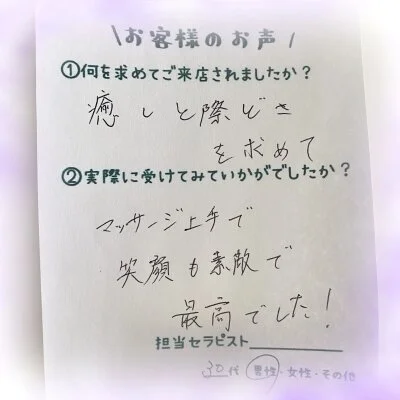 \お客様のお声/
①何を求めてご来店されましたか？
癒しと際どさ
を求めて
②実際に受けてみていかがでしたか？
マッサージ上手で
笑顔も素敵で
最高でした！
担当セラピスト
30代 男性・女性・その他